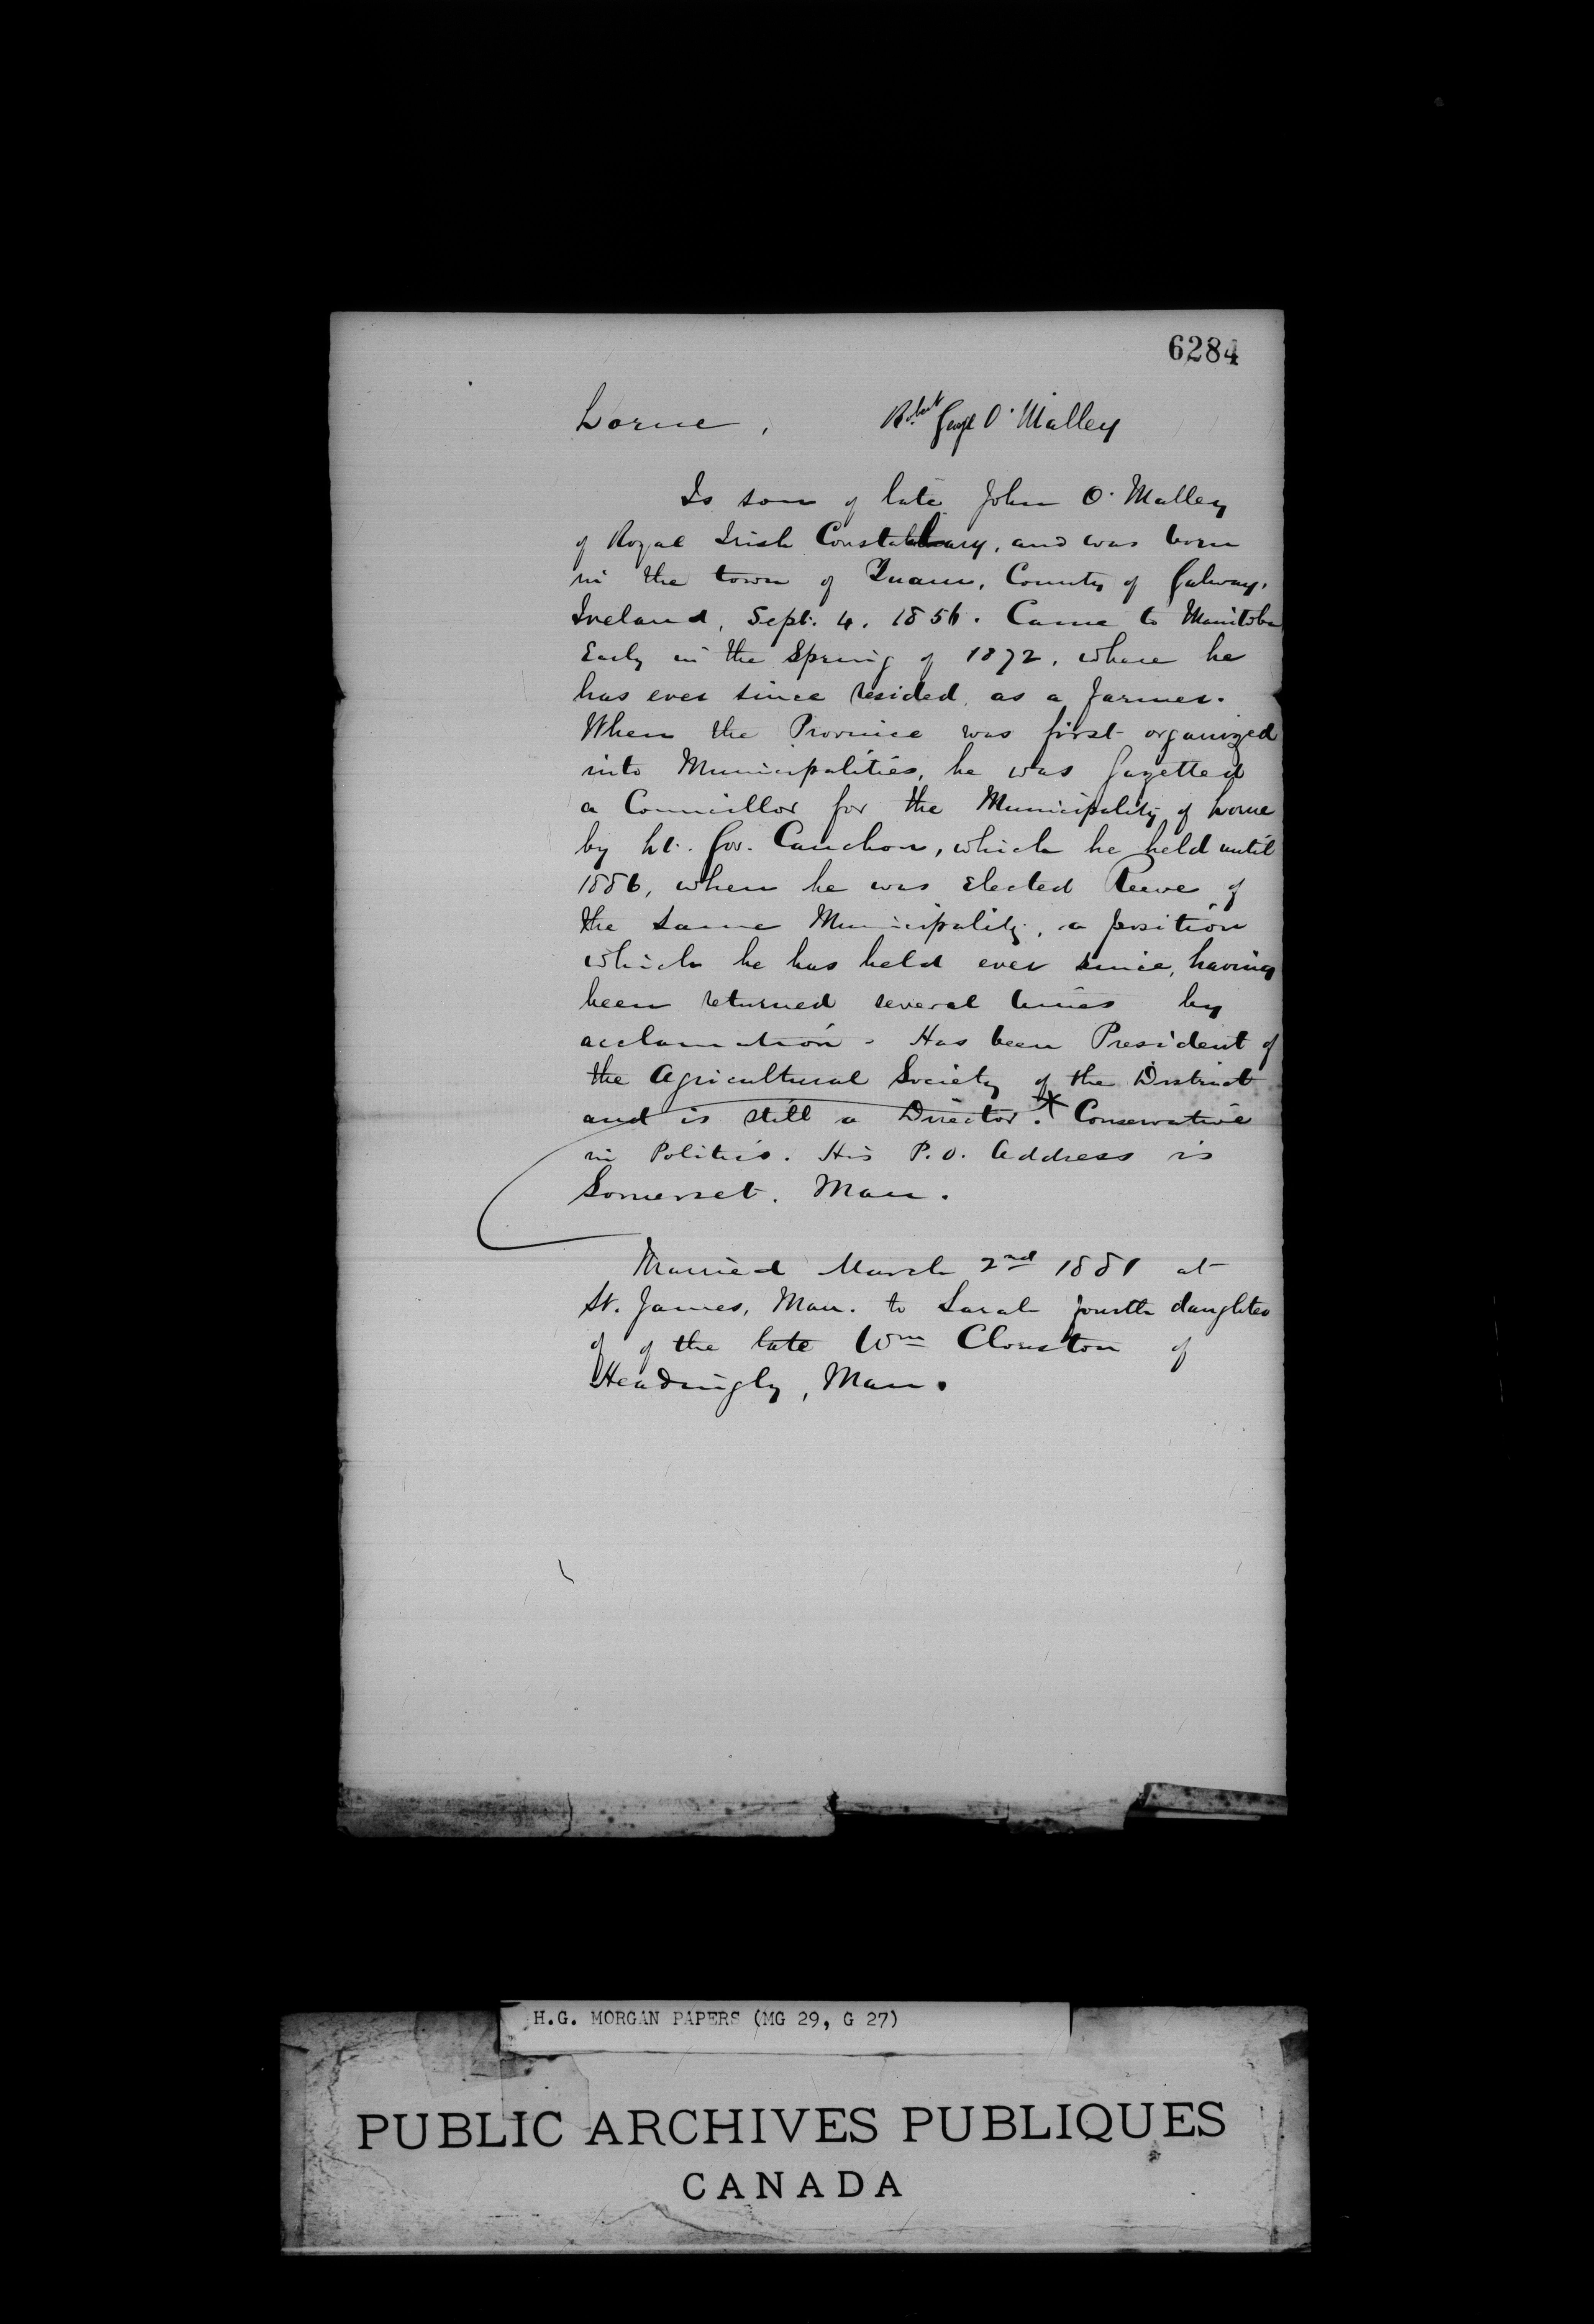 6284
Lorne, Robert George O'Malley
Is son of late John O'Malley
of Royal Irish Constabulary, and was born
in the town of Tuam, County of Galway,
Ireland, Sept. 4. 1856. Came to Manitoba
Early in the Spring of 1872, where he
has ever since resided, as a farmer.
When the Province was first organized
into Municipalities, he was Gazetted
a Councillor for the Municipality of Lorne
by Lt. Gov. Cauchon, which he held until
1886, when he was elected Reeve of
the same Municipality, a position
which he has held ever since, having
been returned several times by
acclamation - Has been President of
the Agricultural Society of the District
and is still a Director. * Conservative
in Politics. His P.O. Address is
Somerset. Man.
Married March 2nd 1881 at
St. James, Man. to Sarah fourth daughter
of of the late Wm Clouston of
Headingly, Man.
H.G. MORGAN PAPERS (MG 29, G 27)
PUBLIC ARCHIVES PUBLIQUES
CANADA